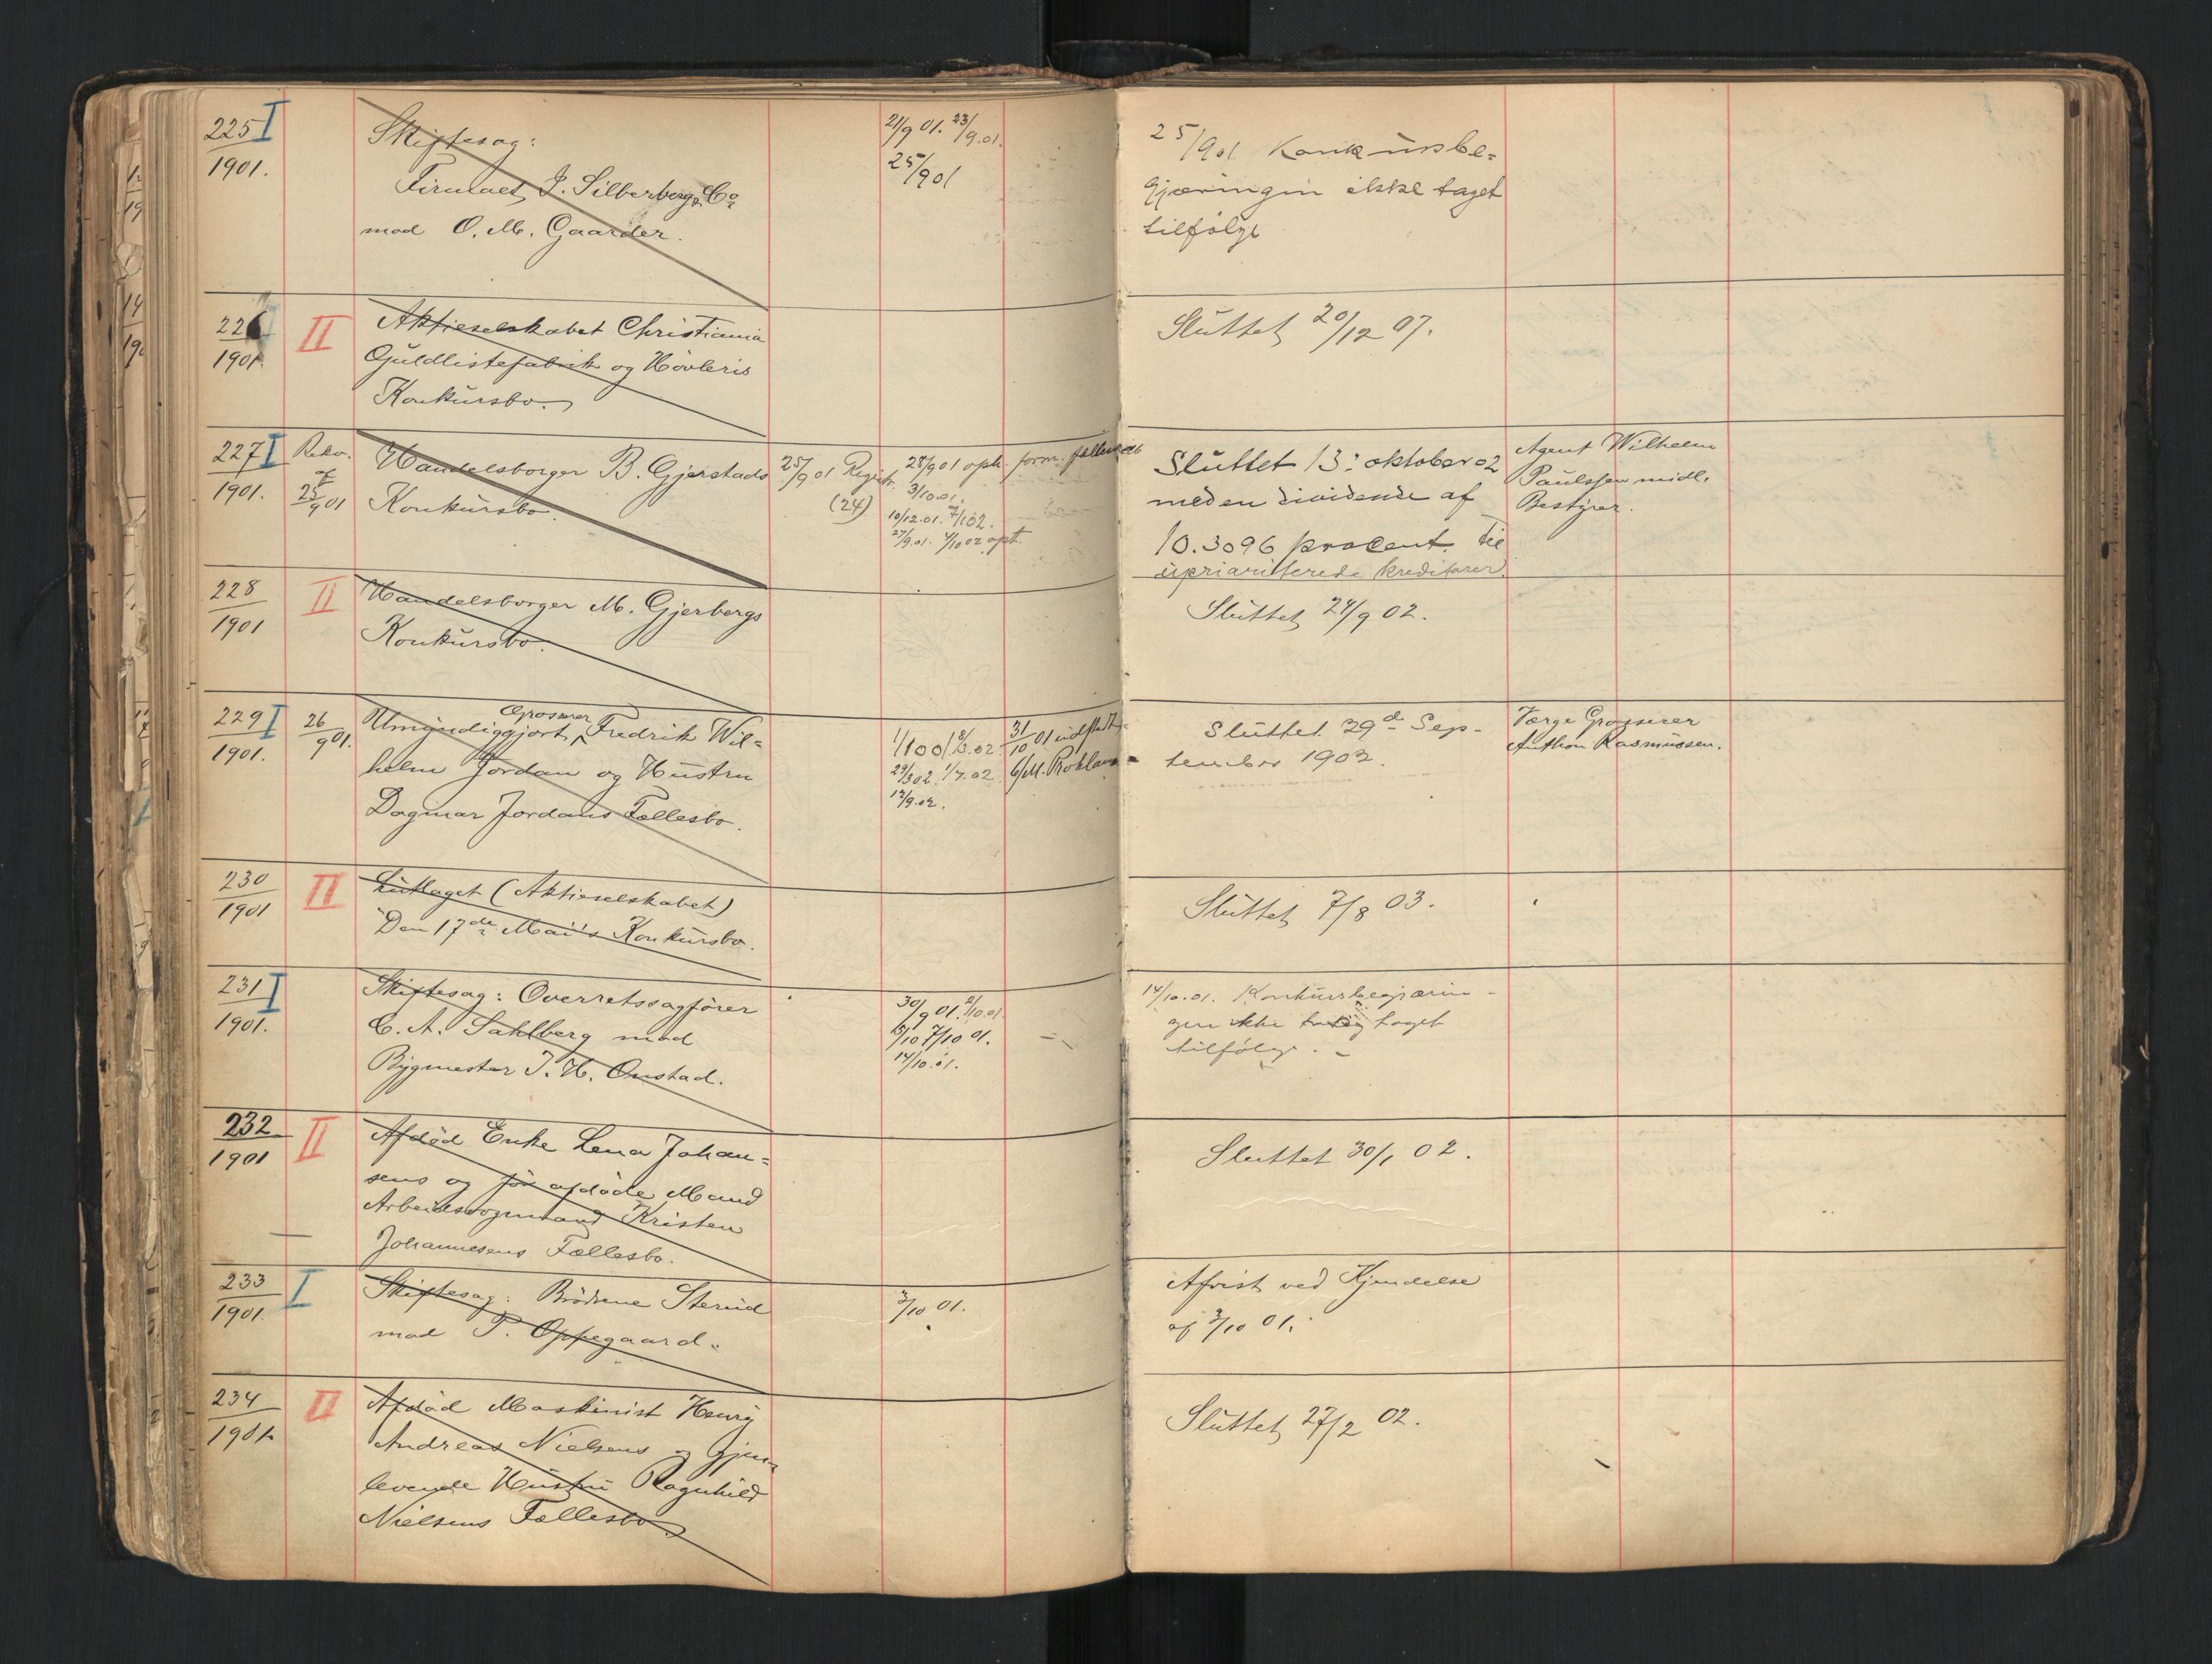 225 I
1901.
Skiftesag:
Firmaet J. Silberberg & Co
mod O. M. Gaarder.
21/9 01. 23/9.01.
25/9 01
25/9 01 Konkursbe-
gjæringin ikke taget
tilfølge
226
1901.
II
Aktieselskabet Christiania
Guldlistefabrik og Høvleris
Konkursbo.
Sluttet 20/12 07.
227 I
1901.
Rekv.
af
25/9 01
Handelsborger B. Gjerstads
Konkursbo.
25/9 01 Registr.
(24)
28/9 01 opt. form.
3/10 01.
10/12.01. 7/1 02.
27/9.01. 4/10 02 opt.
Sluttet 13: oktober 02
med en dividende af
10.3096 procent til
upriariterede kreditorer.
Agent Wilhelm
Paulssen midl.
Bestyrer.
228
1901
II
Handelsborger M. Gjerbergs
Konkursbo.
Sluttet 24/9 02.
229 I
1901.
26/9 01.
Grosserer
Umyndiggjort Fredrik Wil-
helm Jordan og Hustru
Dagmar Jordans Fællesbo.
31/10 01 udstedt
29/3 02. 1/7.02 6/M. Proklama
12/9.02.
Sluttet 29d Sep-
tember 1902.
Værge Grosserer
Anthon Rasmussen.
230
1901
II
Lutlaget (Aktieselskabet)
Den 17de Mai's Konkursbo.
Sluttet 7/8 03.
231 I
1901.
Skiftesag: Overretssagfører
C. A. Sahlberg mod
Bygmester J. H. Onstad.
30/9 01. 2/10.01
5/10 7/10 01.
14/10.01.
14/10.01. Konkursbegjærin-
gen ikke taget
tilfølge. -
232
1901
II
Afdød Enke Lena Johan-
sens og før afdøde Mand
Arbeidsvognmand Kristen
Johannesens Fællesbo.
Sluttet 30/1 02.
233 I
1901.
Skiftesag: Brødrene Sterud
mod P. Oppegaard.
3/10 01.
Afvist ved Kjendelse
af 3/10 01.
234
1901
II
Afdød Maskinist Henry
Andreas Nielsens og Gjen-
levende Hustru Ragnhild
Nielsens Fællesbo.
Sluttet 27/2 02.